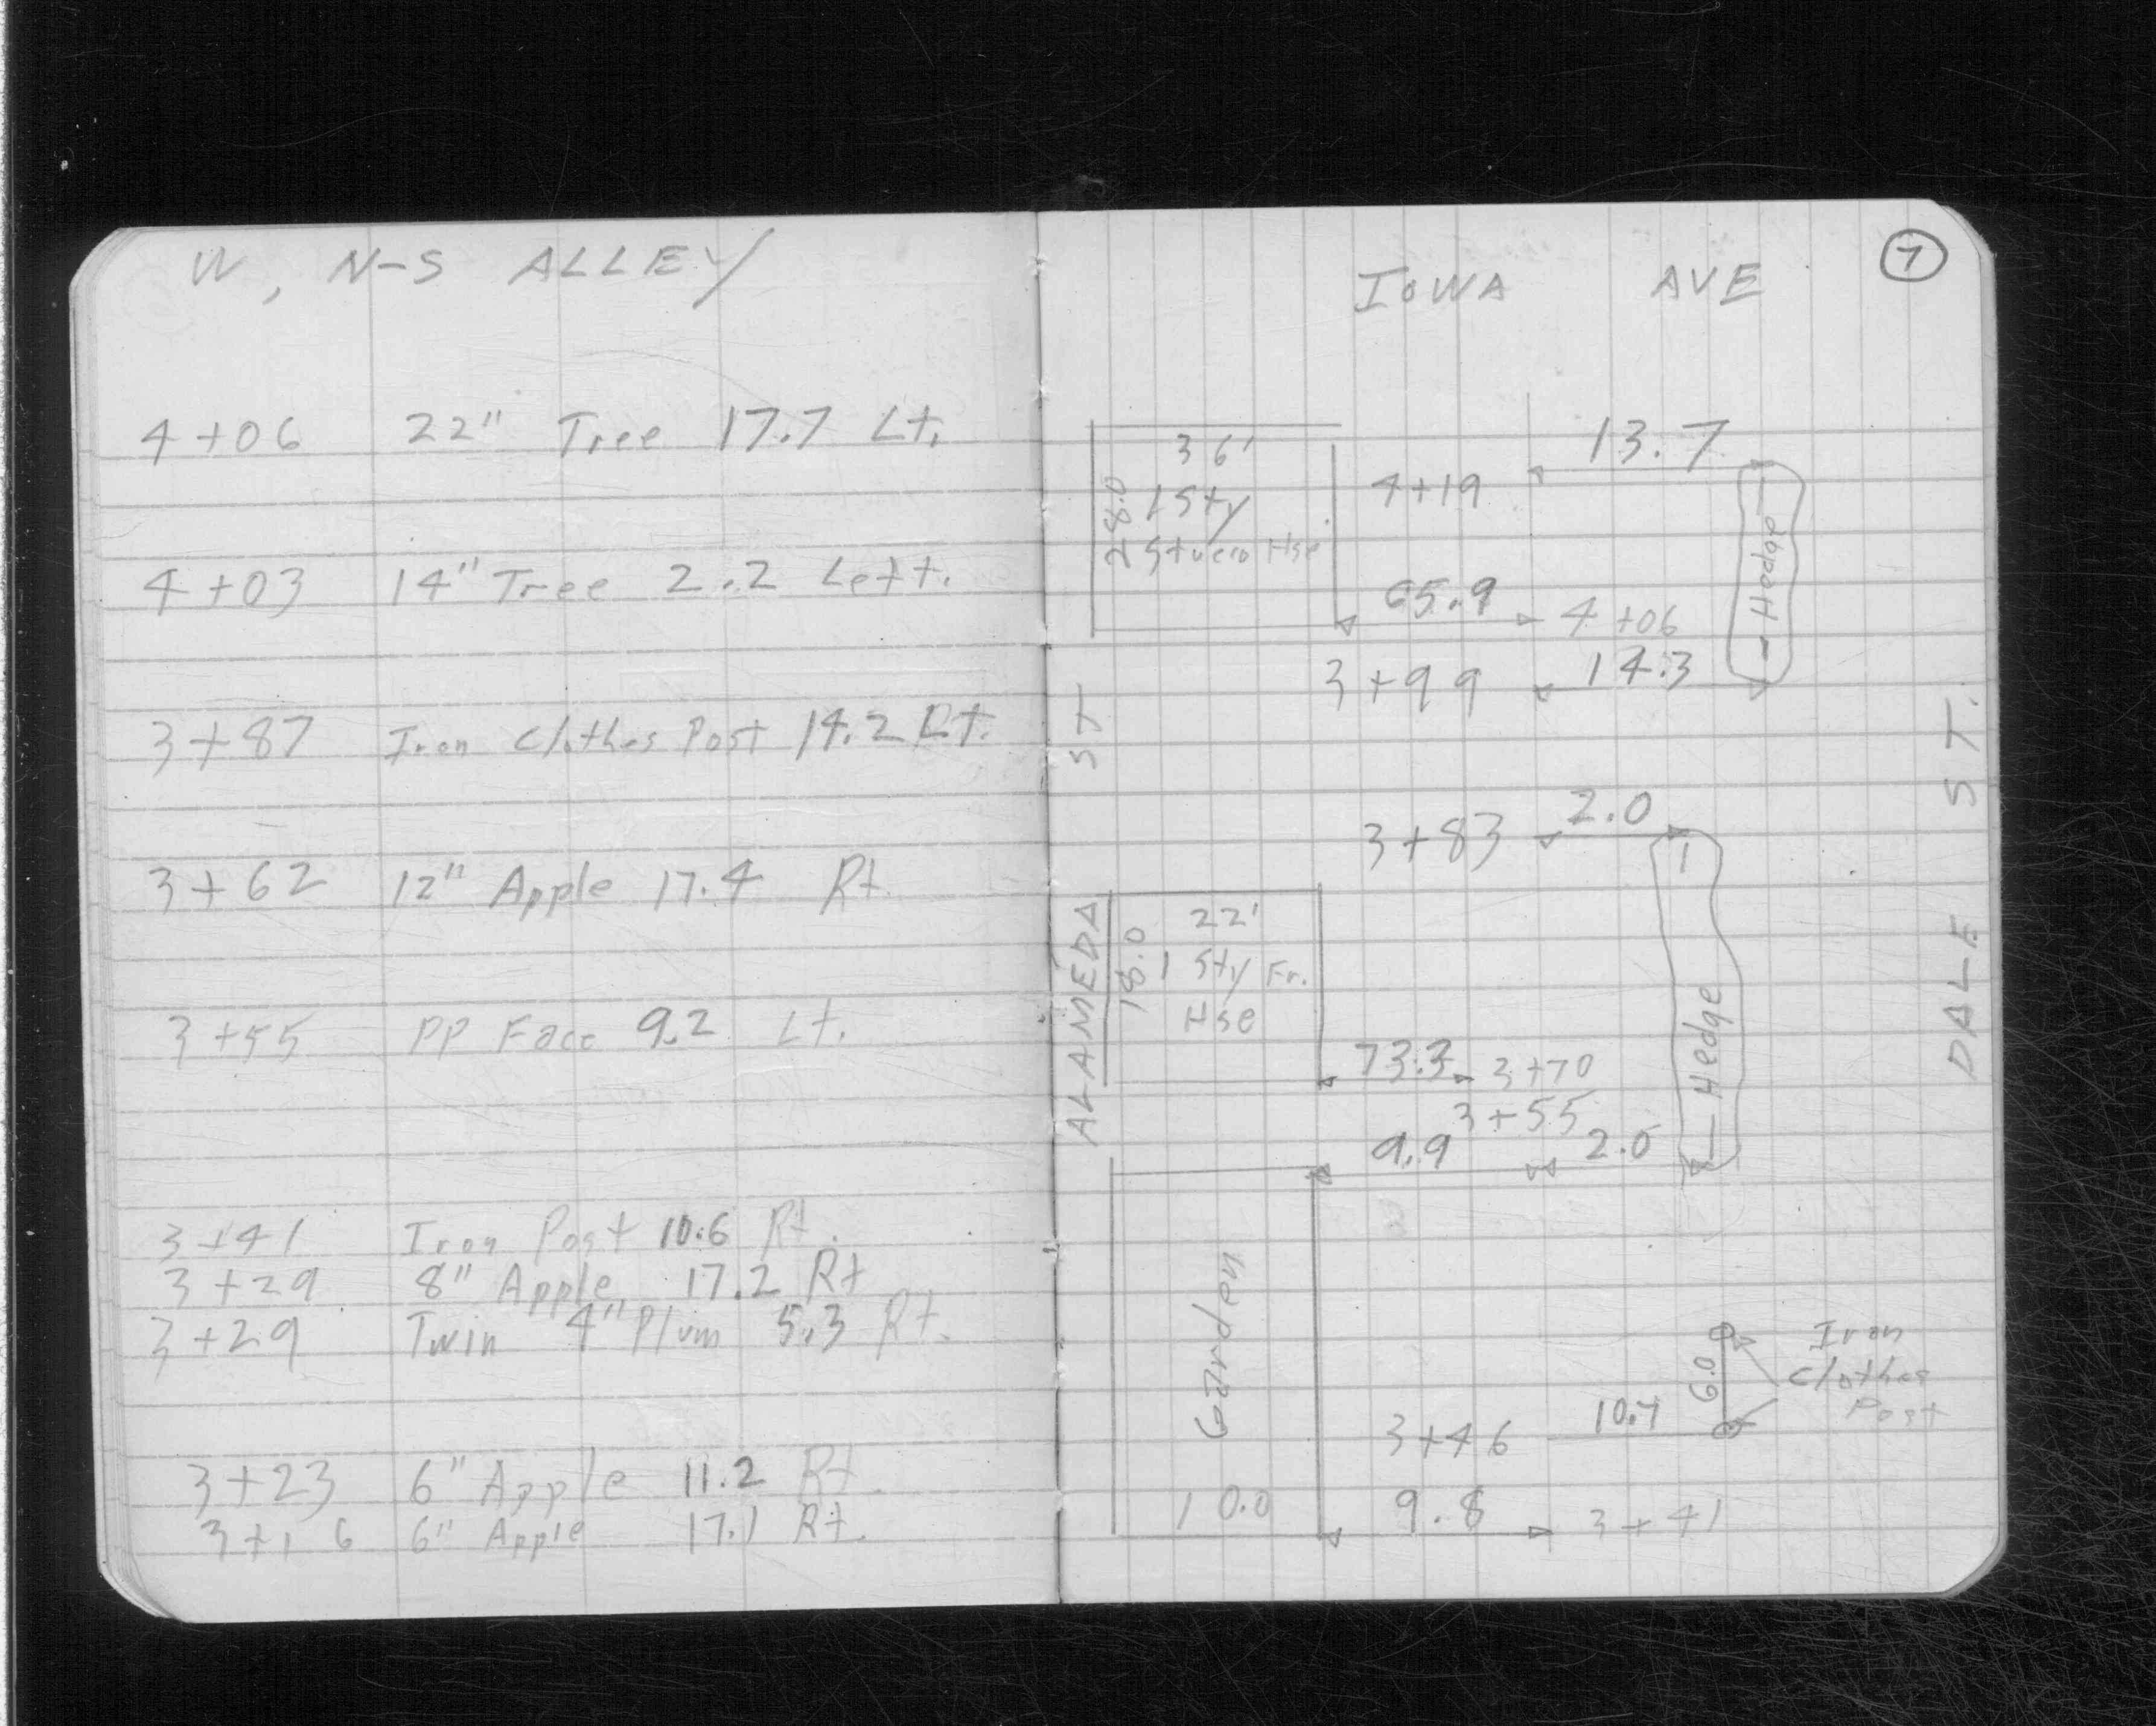 W, N-S ALLEY
4+06 22" Tree 17.7 Lt.
4+03 14" Tree 2.2 Left.
3+87 Iron Clothes Post 14.2 Rt.
3+62 12" Apple 17.4 Rt.
3+55 PP Face 9.2 Lt.
3+41 Iron Post 10.6 Rt.
3+29 8" Apple 17.2 Rt
3+29 Twin 4" Plum 5.3 Rt.
3+23 6" Apple 11.2 Rt.
3+16 6" Apple 17.1 Rt.
7
IOWA AVE
13.7
36'
4+19
28.0
1 Sty
Stucco Hse
Hedge
65.9
4+06
3+99
14.3
ST
DALE ST.
2.0
3+83
ALAMEDA
22'
18.0
1 Sty Fr.
Hse
Hedge
73.3
3+70
3+55
9.9
2.0
Garden
Iron
Clothes
Post
6.0
10.4
3+46
10.0
9.8
3+41